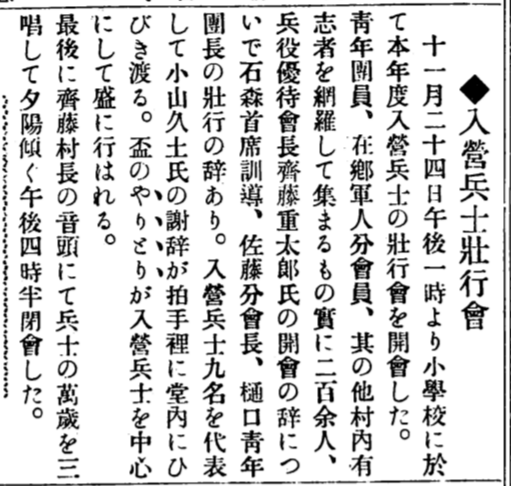 ◆入營兵士壯行會
十一月二十四日午後一時より小學校に於
て本年度入營兵士の壯行會を開會した。
靑年團員、在鄕軍人分會員、其の他村內有
志者を網羅して集まるもの實に二百余人、
兵役優待會長齊藤重太郎氏の開會の辞につ
いで石森首席訓導、佐藤分會長、樋口靑年
團長の壯行の辞あり。入營兵士九名を代表
して小山久士氏の謝辞が拍手裡に堂內にひ
びき渡る。盃のやりとりが入營兵士を中心
にして盛に行はれる。
最後に齊藤村長の音頭にて兵士の萬歲を三
唱して夕陽傾ぐ午後四時半閉會した。